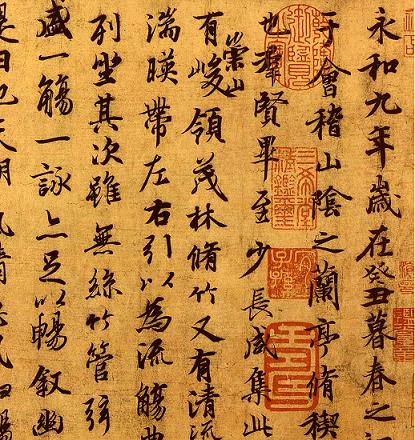 永和九年歲在癸丑暮春之初
于會稽山陰之蘭亭脩稧
也羣賢畢至少長咸集此
有崇山峻領茂林脩竹又有清流
湍暎帶左右引以為流觴曲
列坐其次雖無絲竹管弦
盛一觴一詠亦足以暢叙幽
是日也天朗氣清